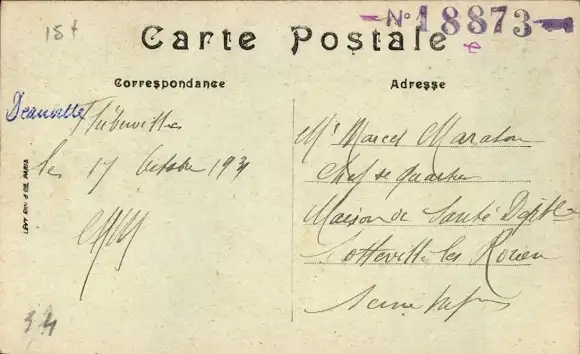 15f
Nº 18873
Carte Postale
Correspondance
Adresse
Deauville
Thiberville
le 17 Octobre 193
LÉVY FILS & CIE, PARIS
Mr Marcel
Chef de quartier
Maison de Santé Deptle
Sotteville les Rouen
Seine Infre
34